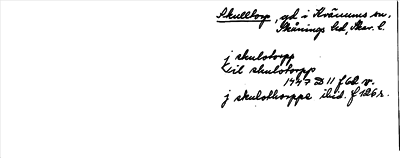 Skulltorp, gd i Kvänums sn,
Skånings hd, Skar. l.
j skulstorpp
til skulstorpp
1447 D 11 f 62 v.
j skulsthorppe ibid. f 126 r.